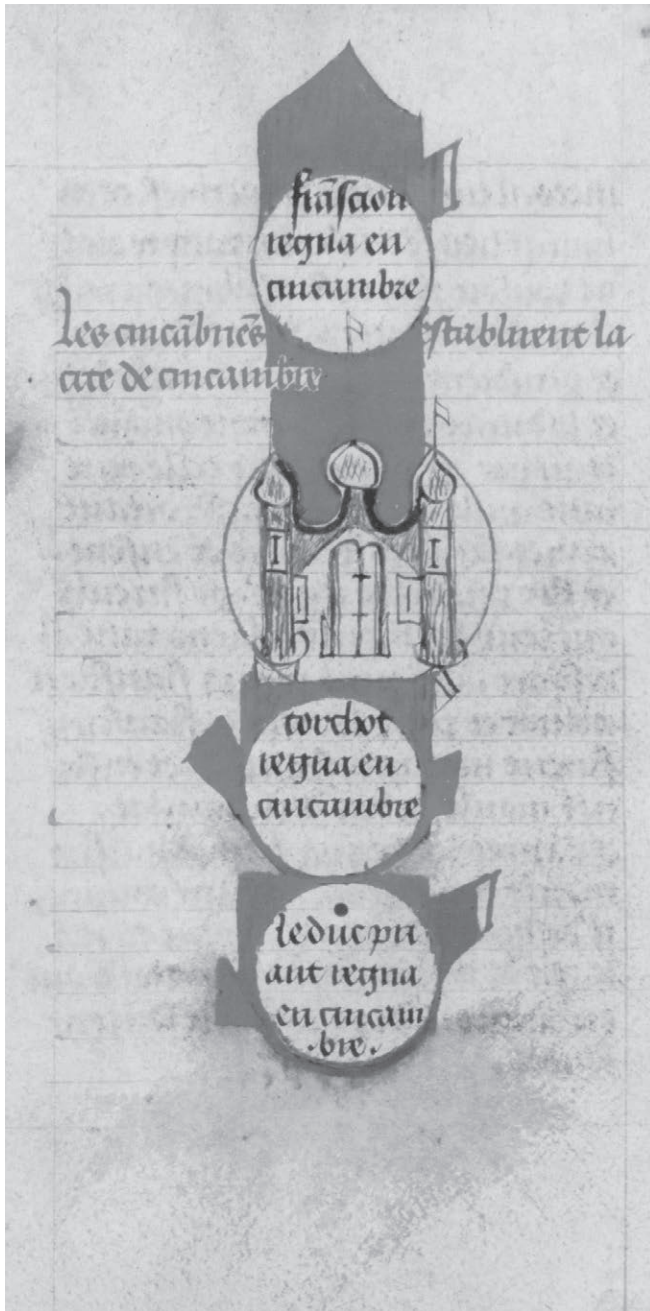 frãscion
regna en
cincambre
les cincãbriēs establirent la
cite de cincambre
torchot
regna en
cincambre
le duc pri
ant regna
en cincam
·bre·